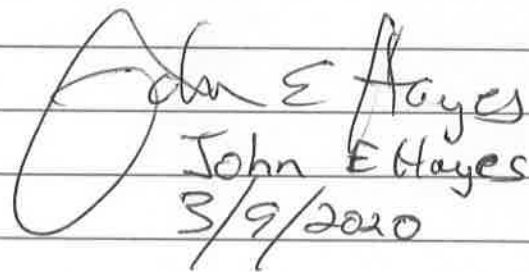 John E Hayes
John E Hayes
3/9/2020